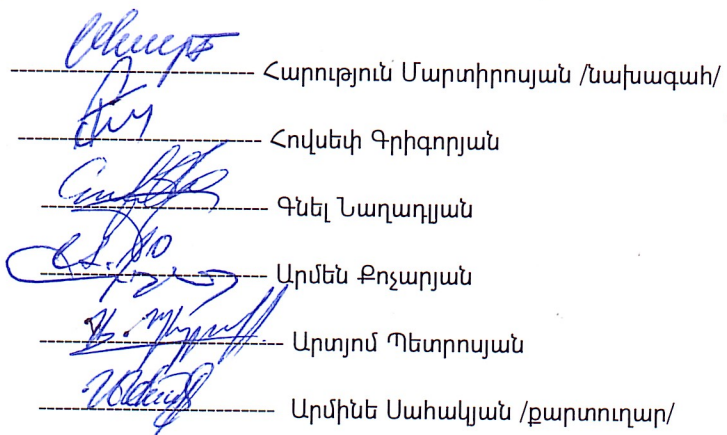 Հարություն Մարտիրոսյան /նախագահ/
Հովսեփ Գրիգորյան
Գնել Նաղադլյան
Արմեն Քոչարյան
Արտյոմ Պետրոսյան
Արմինե Սահակյան /քարտուղար/